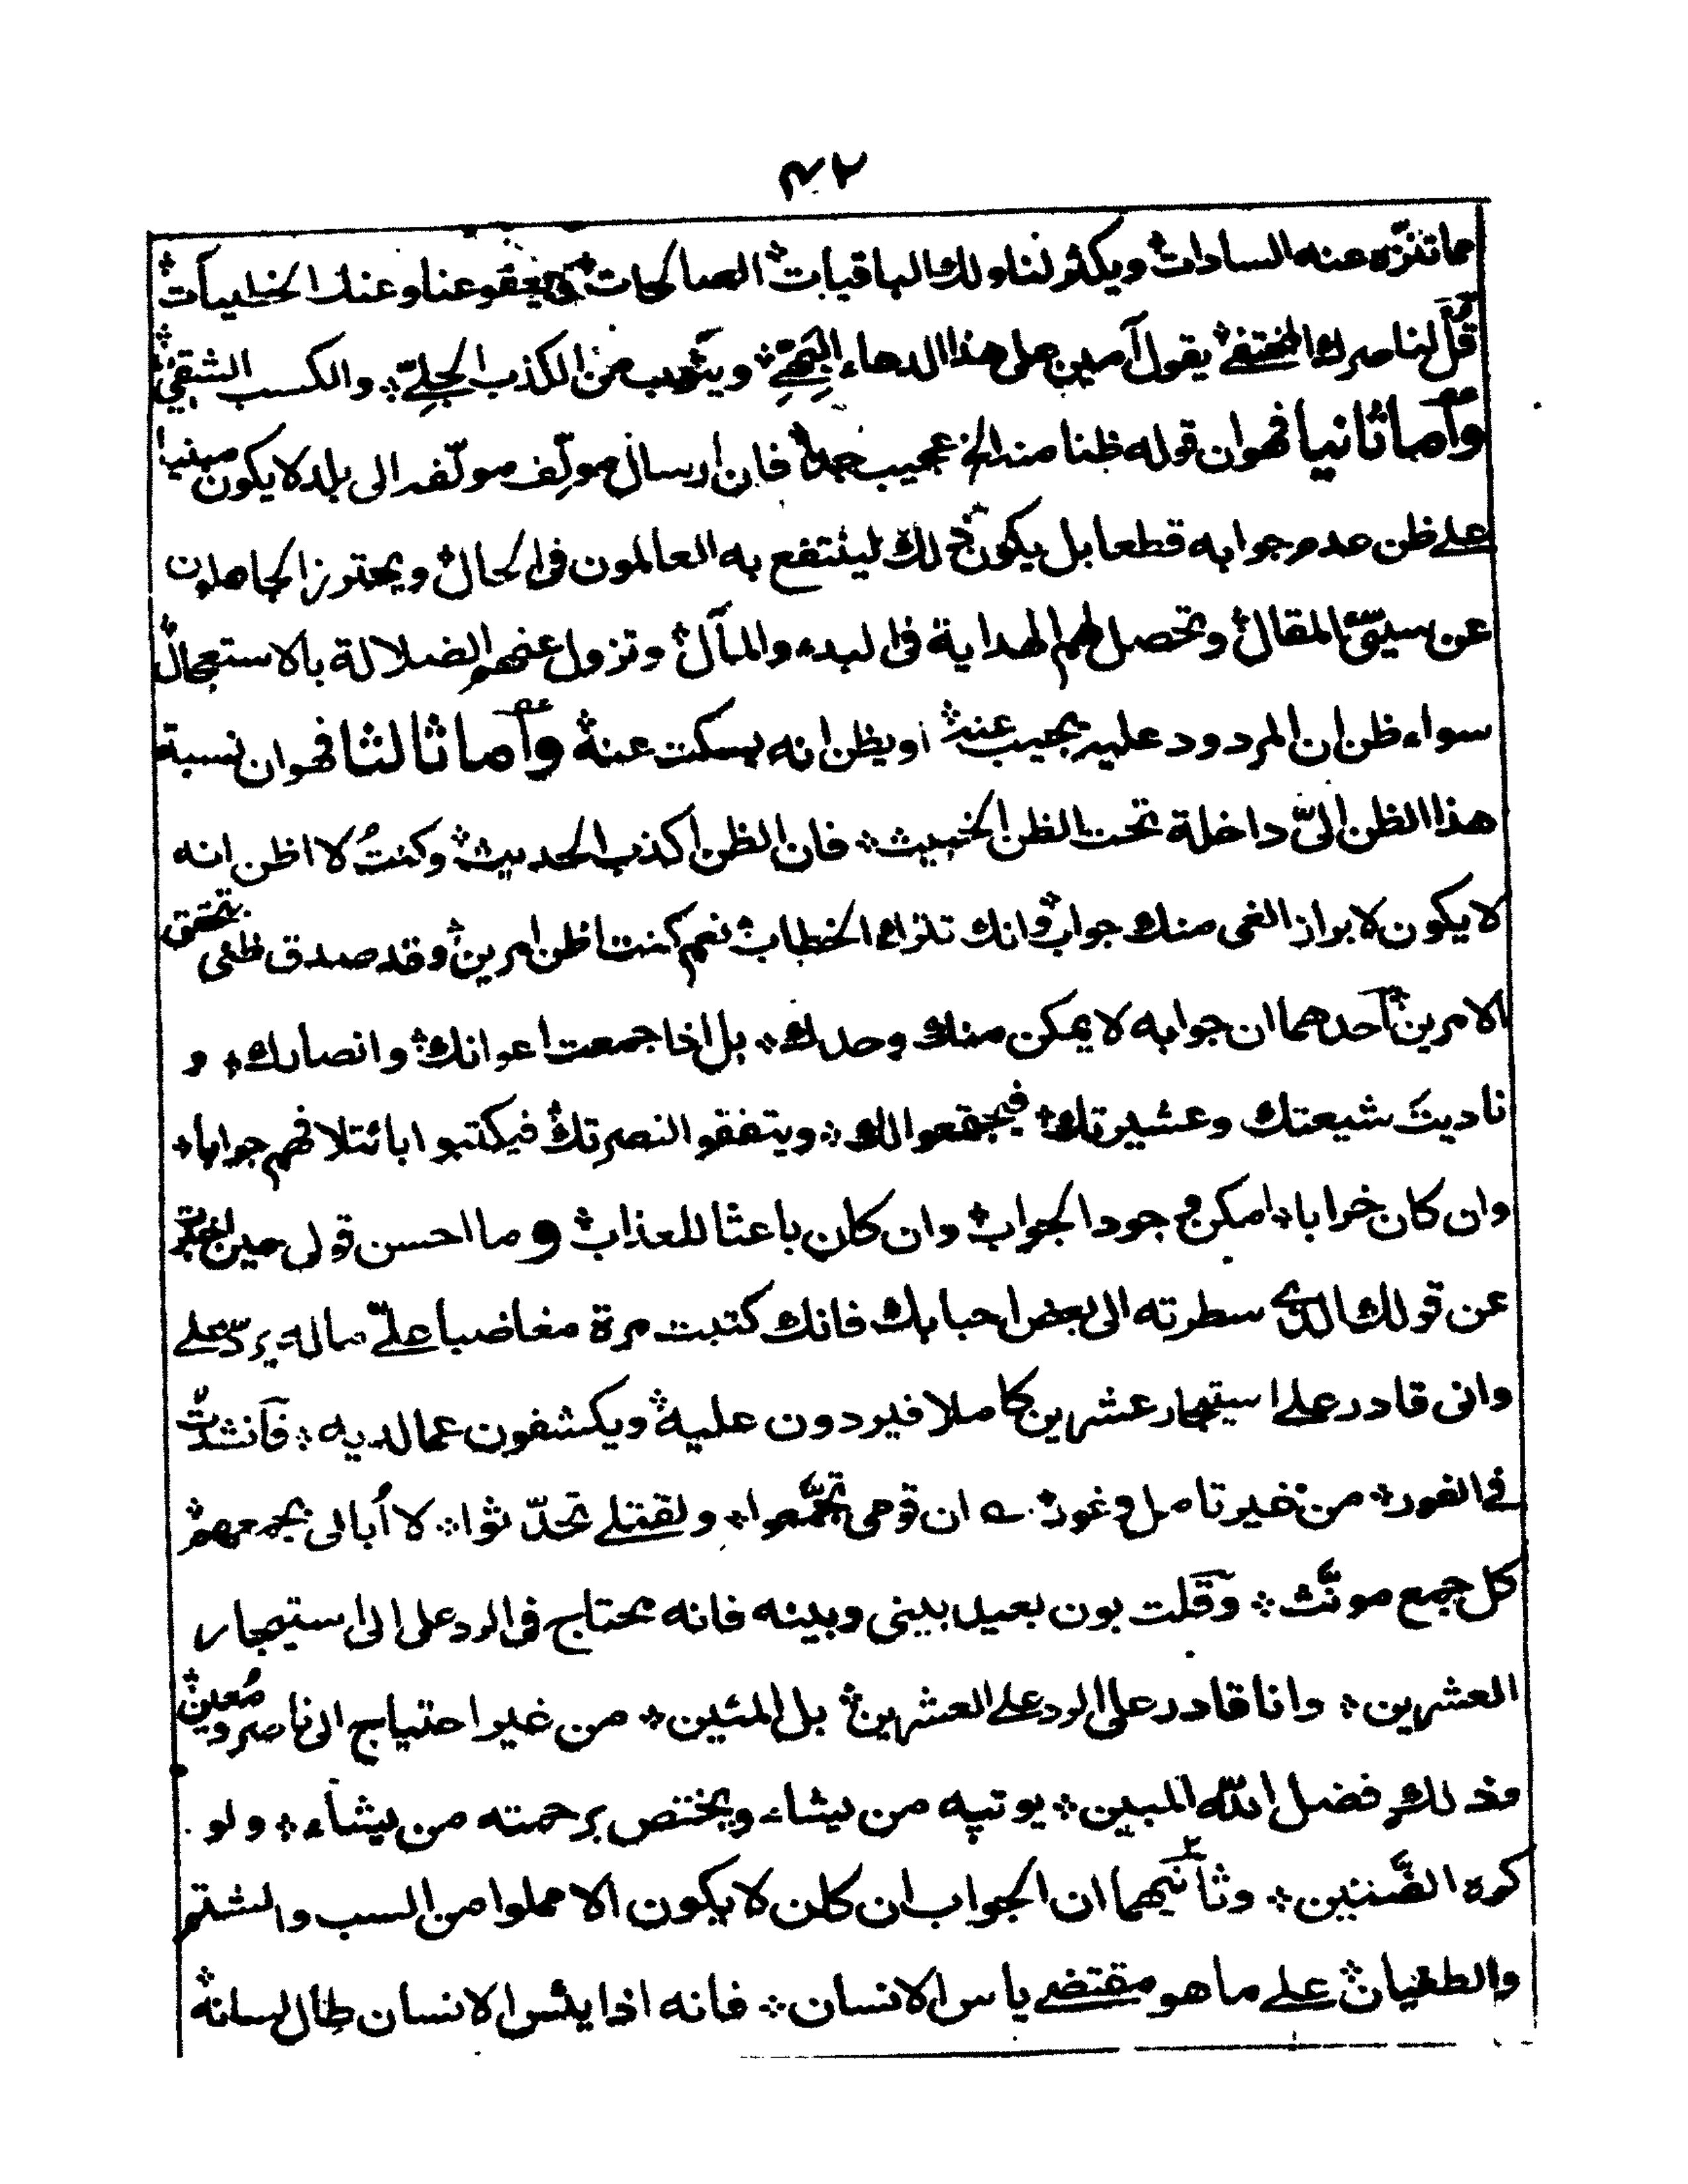 ٤٢
مما تنزه عنه السادات ويكثر لنا ولك الباقيات الصالحات كي يعفو عنا وعنك الخطيآت
قل لناصرك المختفي يقول آمين على هذا الدعاء البهي ويتوب من الكذب الجلي والكسب الشقي
وأما ثانيا فهو ان قوله ظنا منه الخ عجيب جدا فان ارسال مولّف مولّفه الى بلد لا يكون مبنيا
على ظن عدم جوابه قطعا بل يكون ذلك لينتفع به العالمون في الحال ويحترز الجاهلون
عن سيّئ المقال وتحصل لهم الهداية في البدء والمآل وتزول عنهم الضلالة بالاستعجال
سواء ظن ان المردود عليه يجيب عنه او يظن انه يسكت عنه وأما ثالثا فهو ان نسبة
هذا الظن اليّ داخلة تحت الظن الخبيث فان الظن اكذب الحديث وكنتُ لا اظن انه
لا يكون لابراز الغي منك جواب وانك تترك الخطاب نعم كنت اظن امرين وقد صدق ظني بتحقق
الامرين أحدهما ان جوابه لا يمكن منك وحدك بل اذا جمعت اعوانك وانصارك و
ناديتَ شيعتك وعشيرتك فيجتمعوا لك ويتفقوا لنصرتك فيكتبوا بائتلافهم جوابا
وان كان خرابا امكن وجود الجواب وان كان باعثا للعذاب وما احسن قولي حين اخبرت
عن قولك الذي سطرته الى بعض احبابك فانك كتبت مرة مغاضبا عليّ ماله يردّ علي
واني قادر على استيجار عشرين كاملا فيردون عليه ويكشفون عما لديه فأنشدت
في الفور من غير تامل وغور ے ان قومي تجمّعوا ولقتلي تحدّثوا لا أُبالي بجمعهم
كل جمع مونّث وقلت بون بعيد بيني وبينه فانه محتاج في الرد علي الى استيجار
العشرين وانا قادر على الرد على العشرين بل المئين من غير احتياج الى ناصر ومُعين
فذلك فضل الله المبين يوتيه من يشاء ويختص برحمته من يشاء ولو
كره الضَّنين وثانيهما ان الجواب ان كان لا يكون الا مملوا من السب والشتم
والطغيان على ما هو مقتضى ياس الانسان فانه اذا يئس الانسان طال لسانه